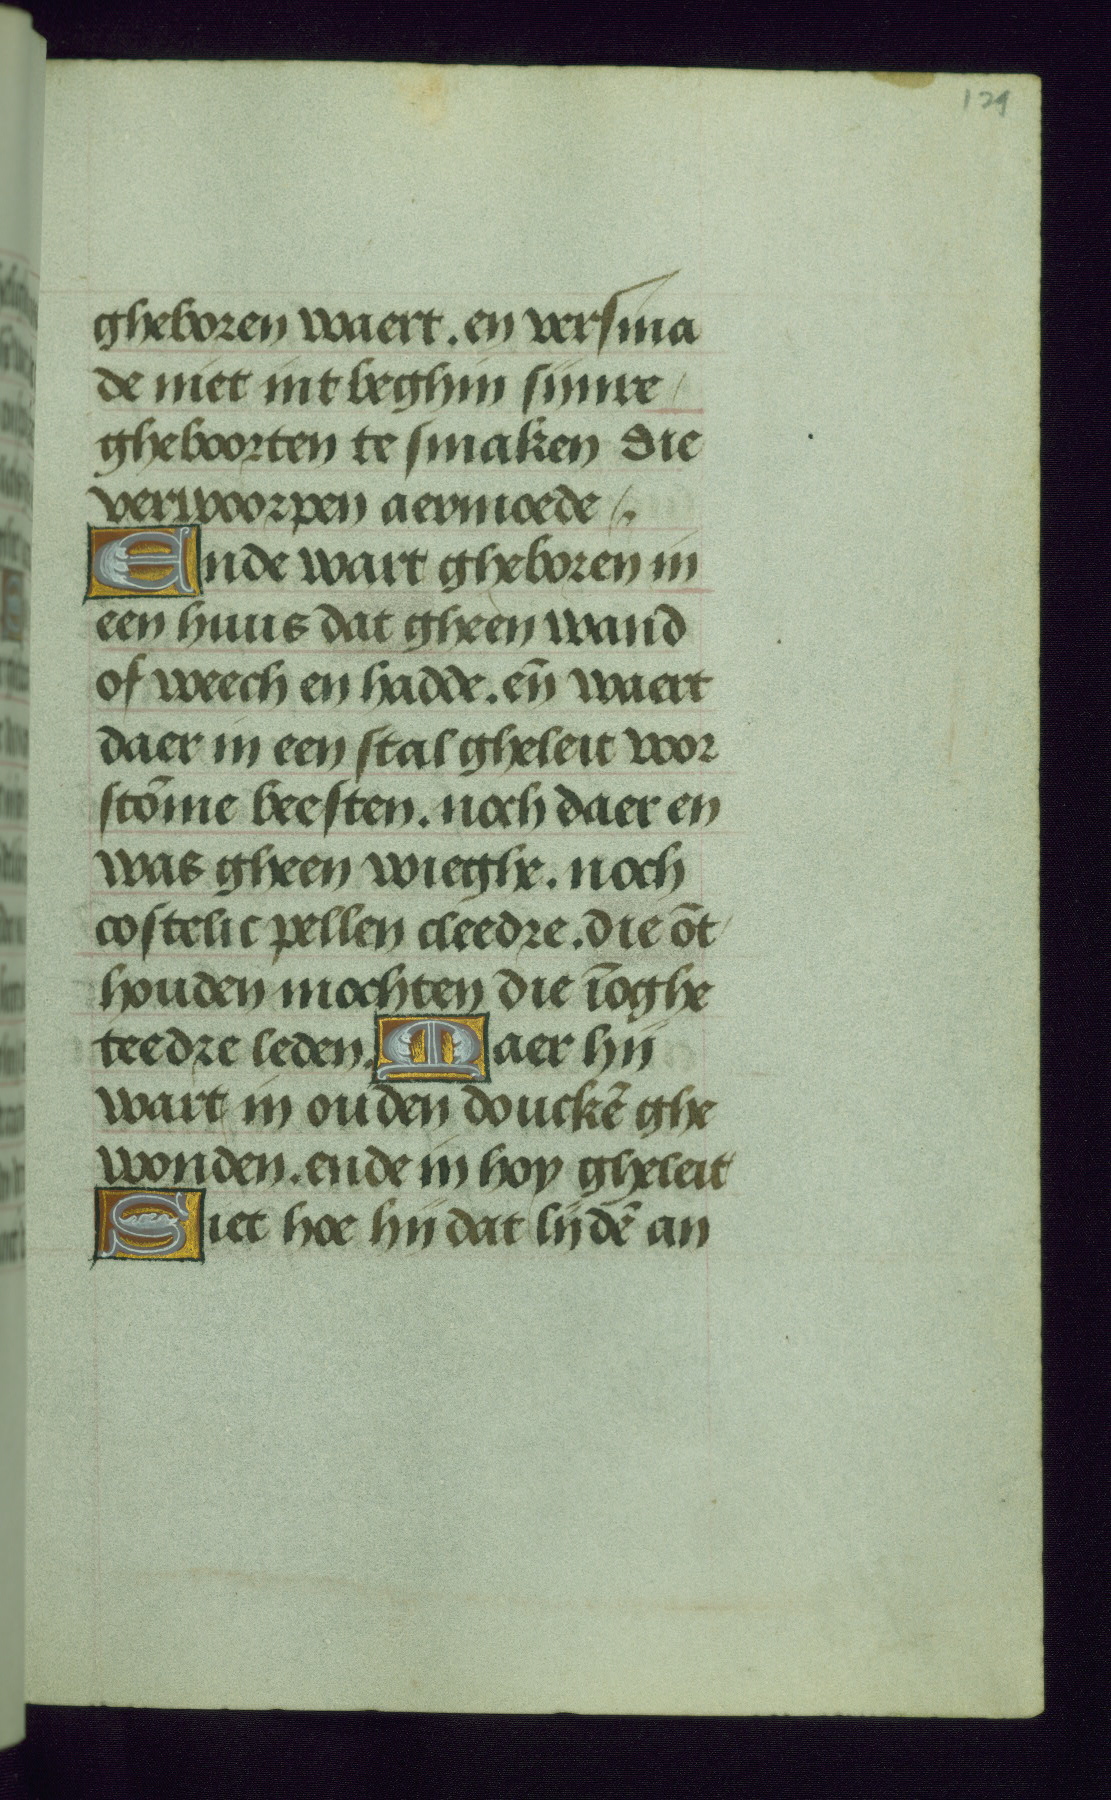 129
gheboren waert. en versma
de niet int beghin sijnre /
gheboorten te smaken die
verwoorpen aermoede /.
Ende wart gheboren in
een huus dat gheen wand
of weech en hadde. en̄ waert
daer in een stal gheleit voor
stōme beesten. noch daer en
was gheen wieghe. noch
costelic pellen cleedre. die ōt/
houden mochten die iōghe
teedre leden. Maer hij
wart in ouden douckē ghe
wonden. ende in hoy gheleit
Siet hoe hij dat lijdē an